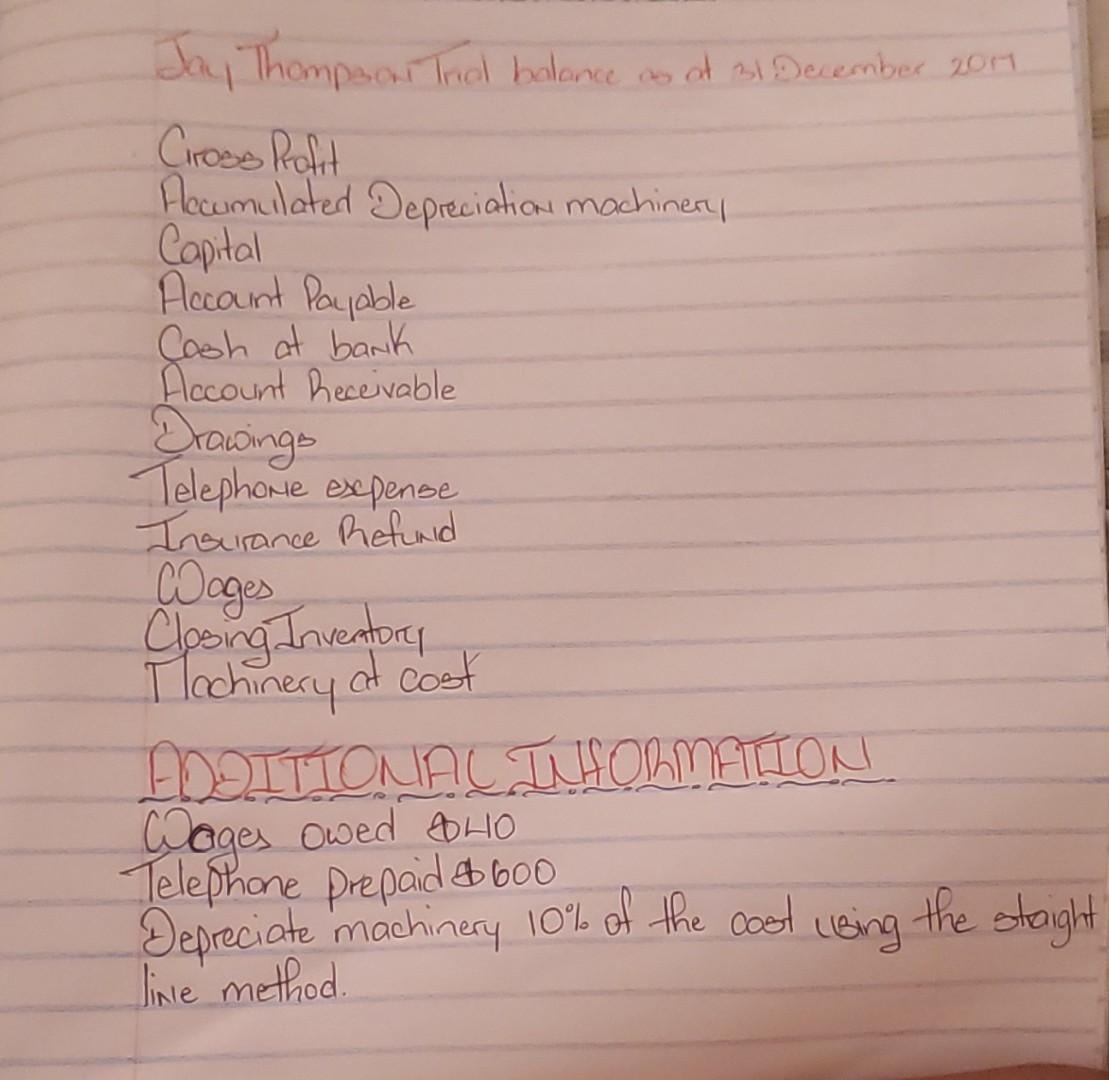 Jay Thompson Trial balance as at 31 December 2017
Gross Profit
Accumulated Depreciation machinery
Capital
Account Payable
Cash at bank
Account Receivable
Drawings
Telephone expense
Insurance Refund
Wages
Closing Inventory
Machinery at cost
ADDITIONAL INFORMATION
Wages owed $410
Telephone prepaid $600
Depreciate machinery 10% of the cost using the staight
line method.